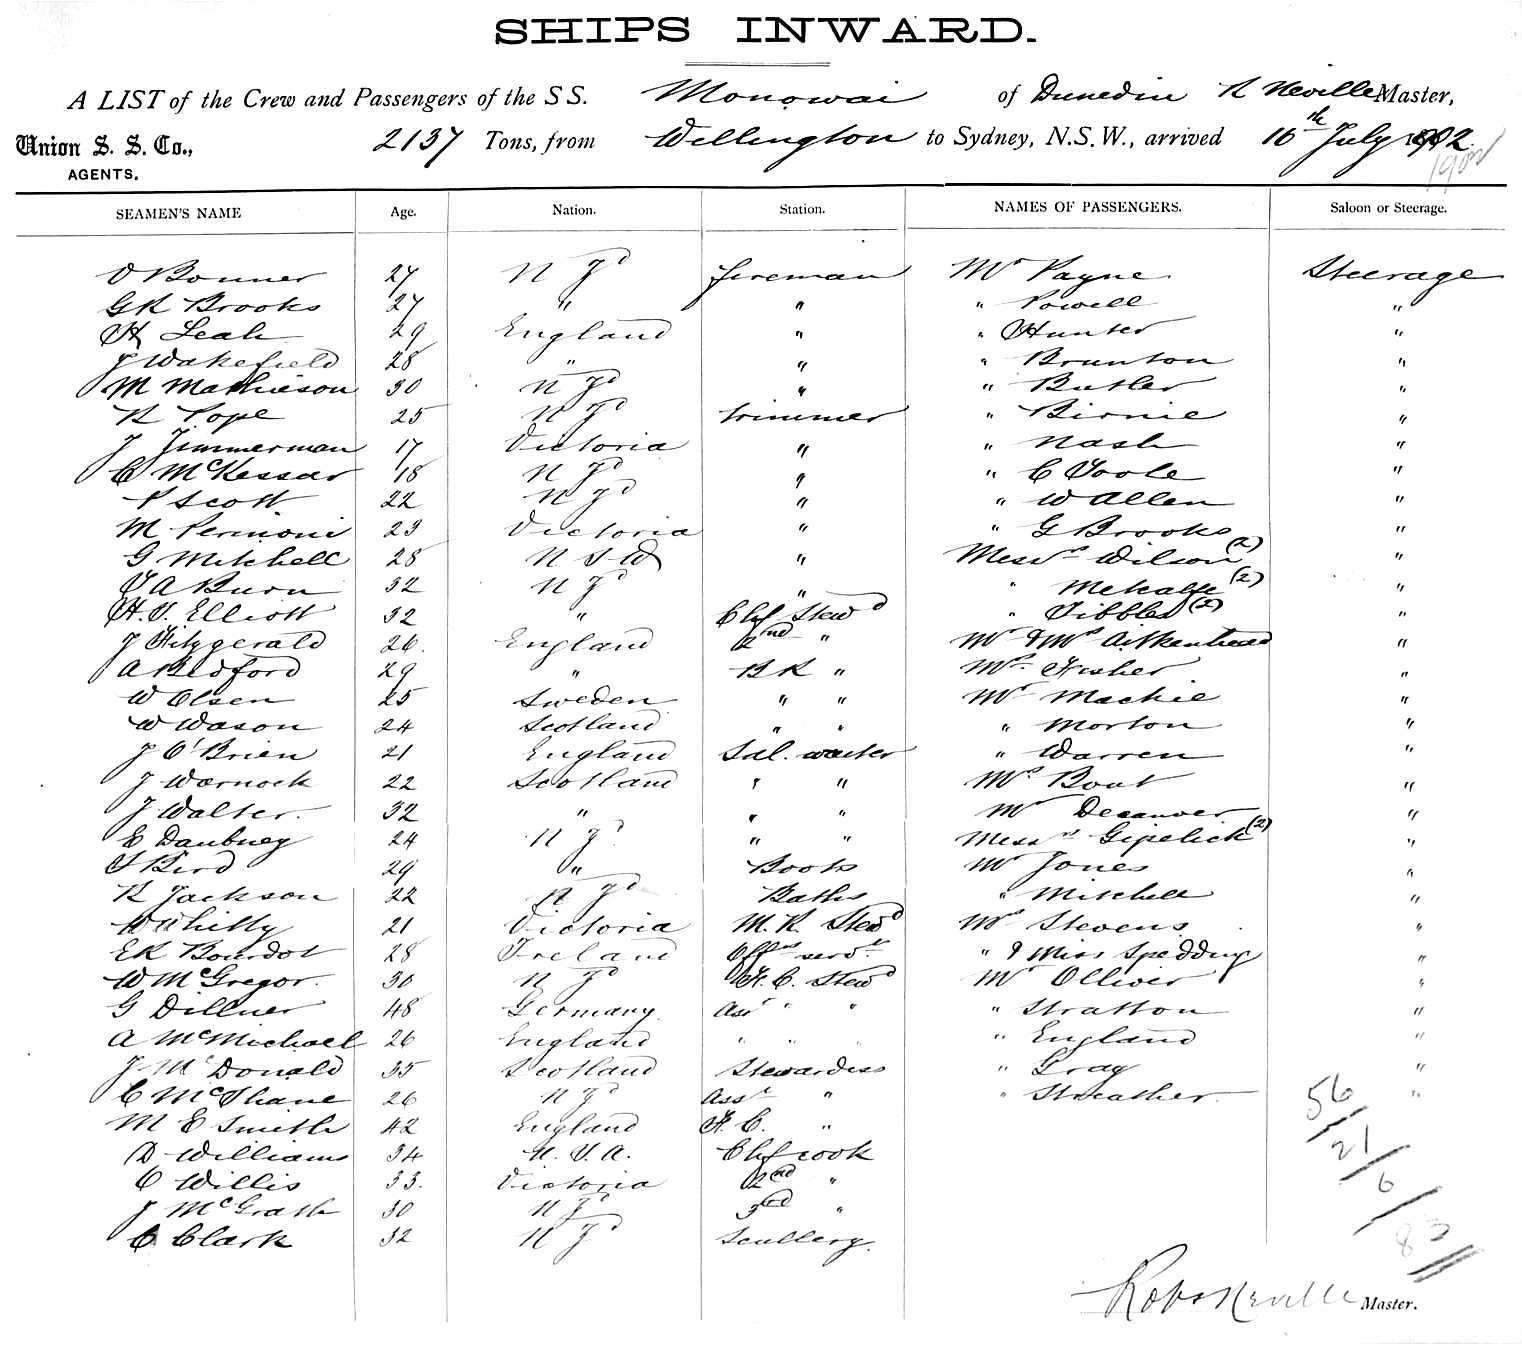 SHIPS INWARD.
A LIST of the Crew and Passengers of the S S. Monowai of Dunedin R Neville Master,
Union S. S. Co., 2137 Tons, from Wellington to Sydney, N.S.W., arrived 16th July 1902
AGENTS. 1902
SEAMEN'S NAME Age. Nation. Station. NAMES OF PASSENGERS. Saloon or Steerage.
O Bonner 27 N Zd fireman Mr Payne Steerage
G R Brooks 27 " " " Powell "
H Leah 29 England " " Hunter "
J Wakefield 28 " " " Brunton "
M Mathieson 30 N Zd " " Butler "
R Pope 25 N Zd trimmer " Birnie "
J Zimmerman 17 Victoria " " Nash "
C McKessar 18 N Zd " " C Toole "
P Scott 22 N Zd " " W Allen "
M Permoni 23 Victoria " " G Brooks "
G Mitchell 28 N S W " Messrs Wilson (2) "
T A Burn 32 N Zd " " Metcalfe (2) "
H. T. Elliott 32 " Chf Stewd " Tibbles (2) "
J Fitzgerald 26. England 2nd " Mr & Mrs Aitkenhead "
A Bedford 29 " B R " Mrs Fisher "
W Olsen 25 Sweden " " Mr Mackie "
W Wason 24 Scotland " " " Morton "
J O'Brien 21 England Sal. waiter " Warren "
J Warnock 22 Scotland " " Mrs Bout "
J Walter. 32 " " " Mr "
E Daubney 24 N Zd " " Messrs (2) "
T Bird 29 " Boots Mr Jones "
R Jackson 22 N Zd Baths " Mitchell "
W Whitty 21 Victoria M. R. Stewd Mrs Stevens "
E R Bourdot 28 Ireland Offrs servt. " & Miss Spedding "
W McGregor. 30 N Zd F. C. Stewd Mr Olliver "
G Dillner 48 Germany Asst " " " Stratton "
A McMichael 26 England " " " " England "
J McDonald 35 Scotland Stewardess " Gray "
C McShane 26 N Zd Asst " " Streather. "
M E Smith 42 England F. C. " 56
D Williams 34 U. S. A. Chf cook 21
C Willis 33. Victoria 2nd " 6
J McGrath 30 N Zd 3rd " 83
C Clark 32 N Zd Scullery.
Robt Neville Master.